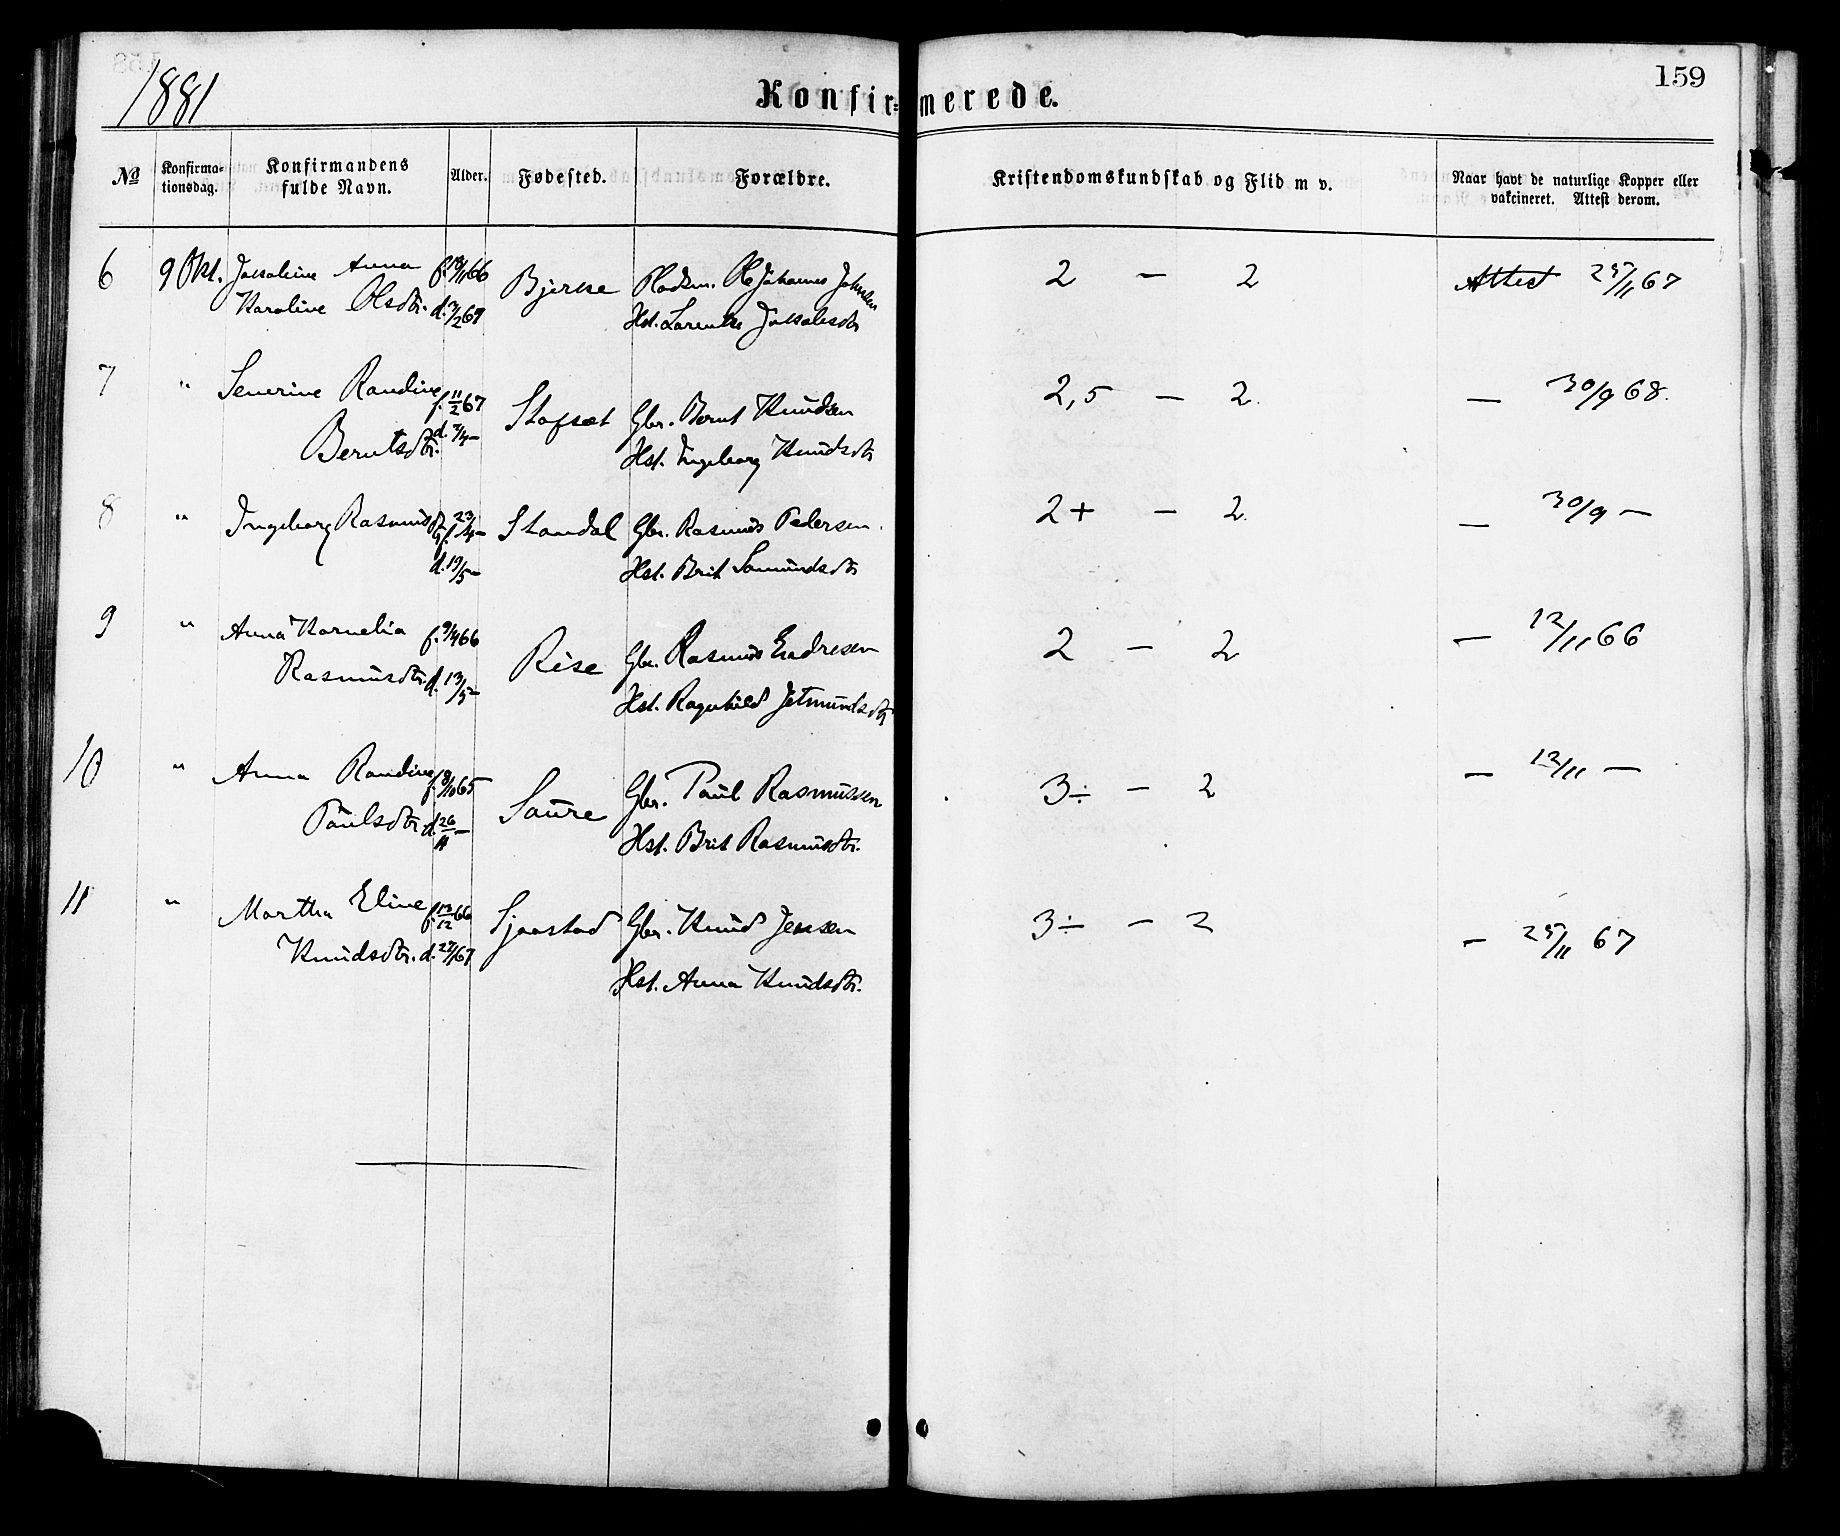 1881
Konfirmerede.
159
№ Konfirmationsdag. Konfirmandens fulde Navn. Alder. Fødested. Forældre. Kristendomskundskab og Flid m v. Naar havt de naturlige Kopper eller vakcineret. Attest derom.
6 9 Okt. Jakobine Anna Bjerke Pladsm. Ole Johannes Johnsen 2 – 2 Attest 25/11 67
Karoline Olsdtr. d. 3/2 67 Hst. Larentse Jakobsdtr
7 " Severine Randine f. 11/2 67 Stafset Gbr. Bernt Knudsen 2,5 – 2. — 30/9 68.
Berntsdtr. d. 7/4 – Hst. Ingeborg Knudsdtr
8 " Ingeborg Rasmusdtr f. 23/4 – Standal Gbr. Rasmus Pedersen. 2+ – 2. — 30/9 –
d. 19/5 – Hst. Brit Samundsdtr
9 " Anna Kornelia f. 9/4 66 Rise Gbr. Rasmus Endresen 2 – 2 — 12/11 66
Rasmusdtr. d. 13/5 – Hst. Ragnhild Jetmundsdtr
10 " Anna Randine f. 8/10 65 Saure Gbr. Paul Rasmussen 3÷ – 2 — 12/11 —
Paulsdtr. d. 26/11 – Hst. Brit Rasmusdtr.
11 " Martha Eline f. 13/12 66 Sjaastad Gbr. Knud Jensen 3÷ – 2 — 25/11 67
Knudsdtr. d. 27/1 67 Hst. Anna Knudsdtr.